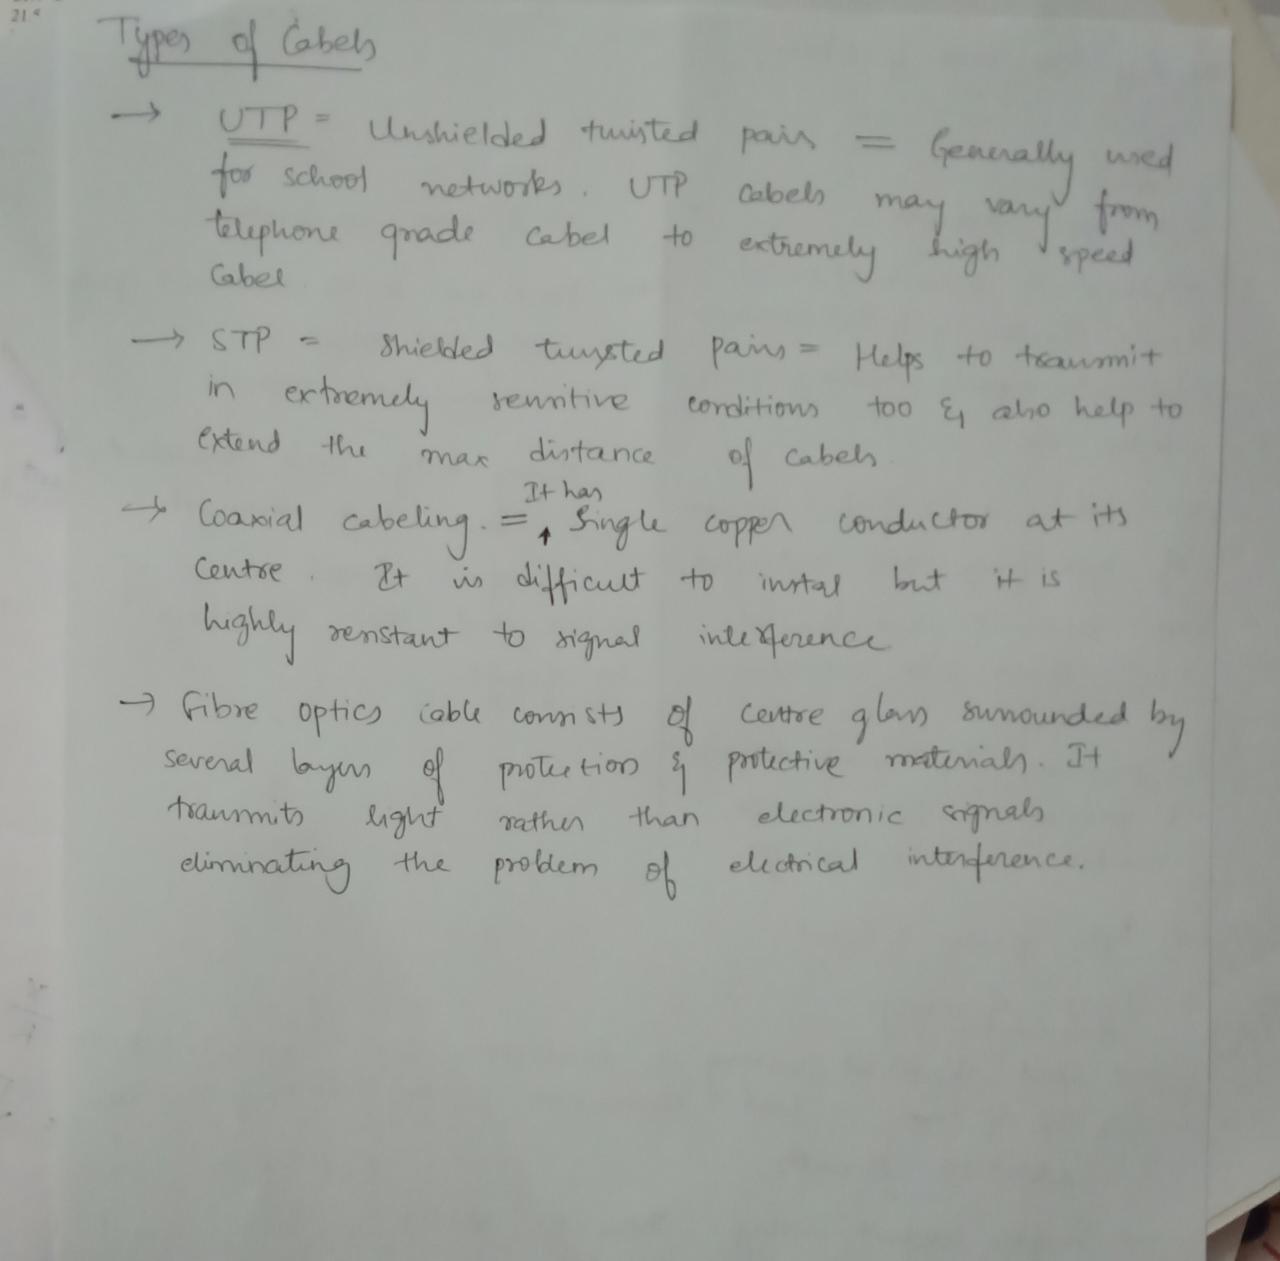 21.
Types of Cabels
→ UTP = Unshielded twisted pairs = Generally used
for school networks. UTP Cabels may vary from
telephone grade cabel to extremely high speed
Cabel
→ STP = Shielded twysted pairs = Helps to transmit
in extremely sensitive conditions too & also help to
extend the max distance of cabels
It has
→ Coaxial cabeling. = ↑ Single copper conductor at its
Centre. It is difficult to instal but it is
highly resistant to signal interference
→ Fibre optics cable consists of centre glass surrounded by
several layers of protection & protective materials. It
transmits light rather than electronic signals
eliminating the problem of electrical interference.